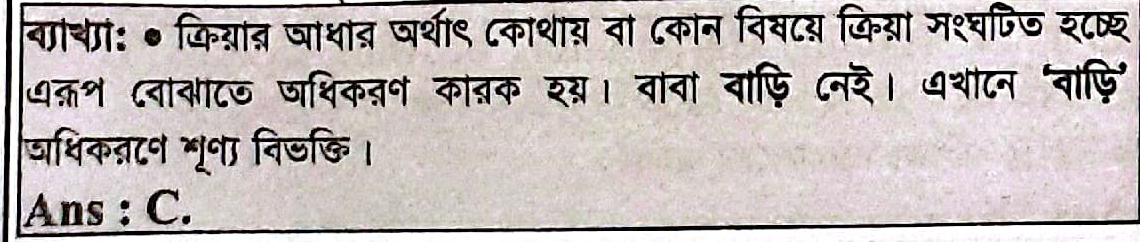 ব্যাখ্যা: ● ক্রিয়ার আধার অর্থাৎ কোথায় বা কোন বিষয়ে ক্রিয়া সংঘটিত হচ্ছে
এরূপ বোঝাতে অধিকরণ কারক হয়। বাবা বাড়ি নেই। এখানে ‘বাড়ি’
অধিকরণে শূণ্য বিভক্তি।
Ans : C.